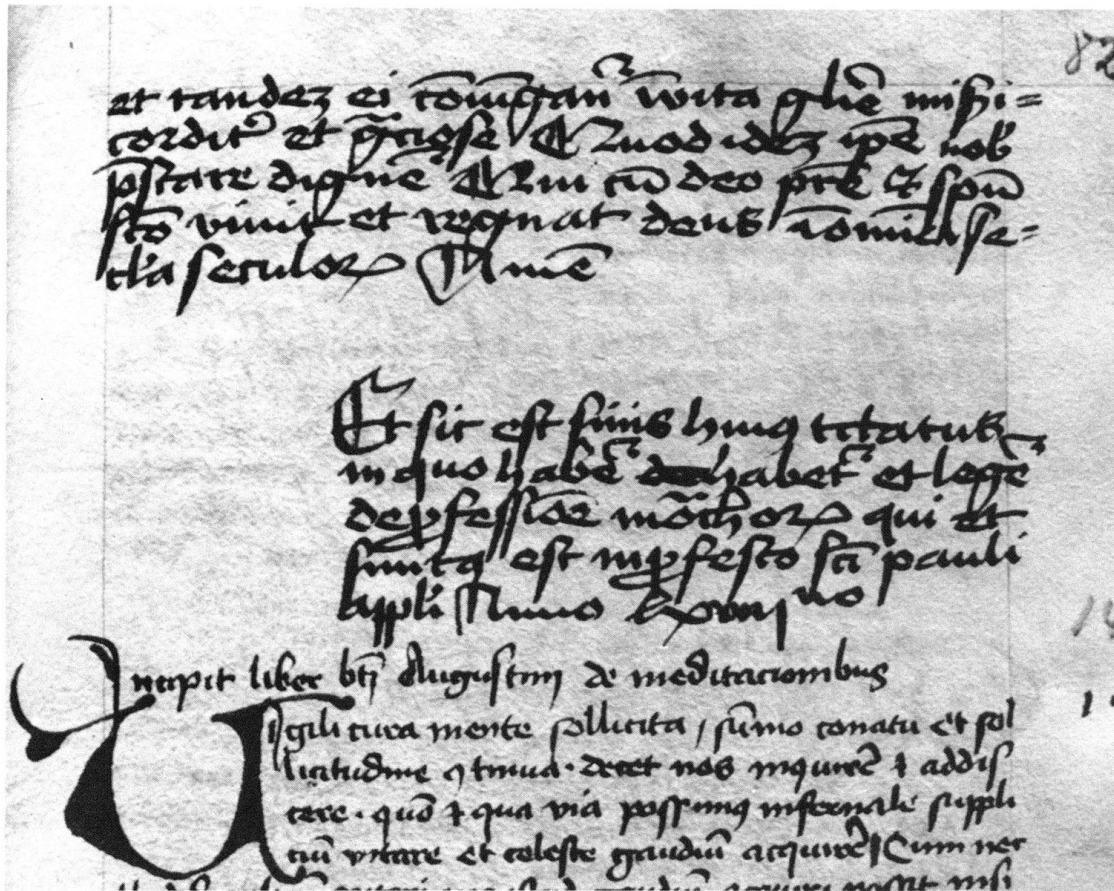 82
et tandez ei cōiūgant᷑ ī vita gl̄ie miſeri=
corditˀ et gr̄acioſe Quod idez ip̄e nob̄
p̄ſtare dignet᷑ Qui cū deo pr̄e et ſpū
ſcō vivit et regnat deus ī om̄ia ſe=
cl̄a ſeculoꝝ Amē
Et ſic eſt finis huiꝰ tractatus
in quo habet᷑ habet᷑ et leget᷑
de ꝓfeſſiōe mōchoꝝ qui et
finitꝰ eſt in ꝓfeſto ſcī pauli
appli Anno lxviii vo
Incipit liber bt̄i Auguſtini de meditacionibus
Vigili cura mente ſollicita / ſūmo conatu et ſol
licitudine ꝯtinua · decet nos inquirē ⁊ addiſ
cere · quō ⁊ qua via poſſimꝰ infernale ſuppli
ciū vitare et celeste gaudiū acquirē Cum nec